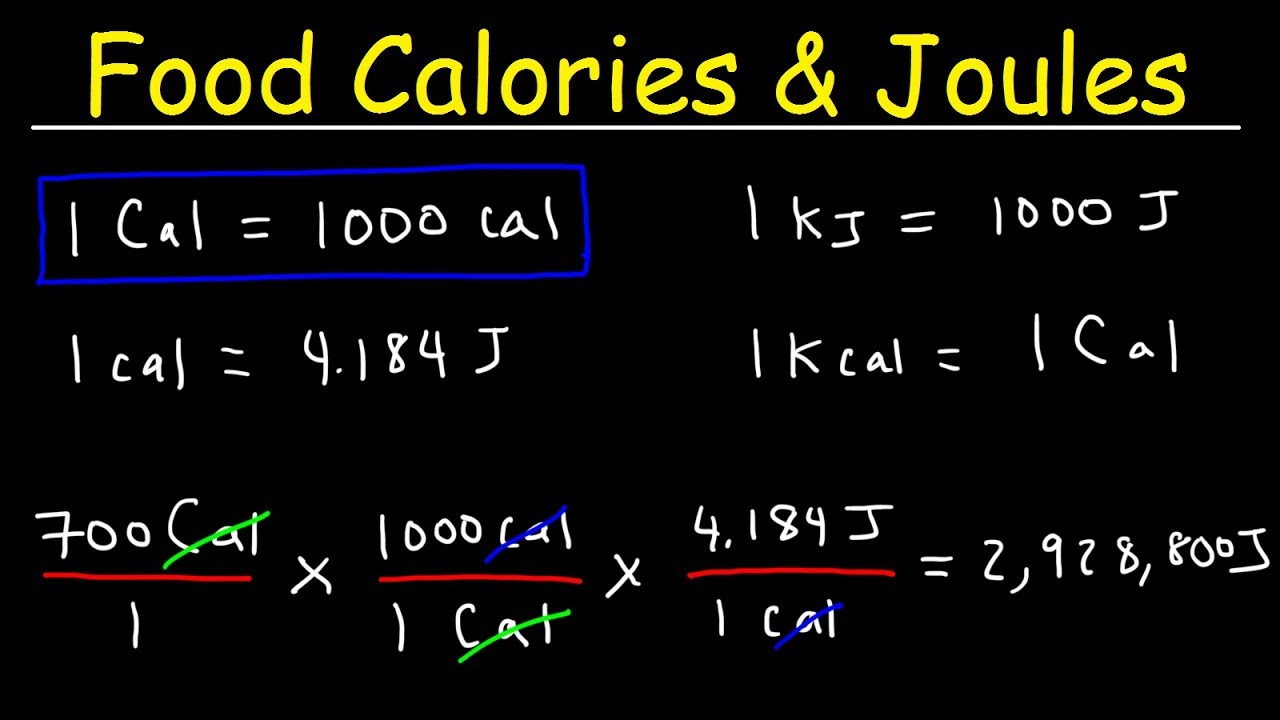 Food Calories & Joules
1 Cal = 1000 cal
1 KJ = 1000 J
1 cal = 4.184 J
1 Kcal = 1 Cal
700 Cal / 1 x 1000 cal / 1 Cal x 4.184 J / 1 cal = 2,928,800J